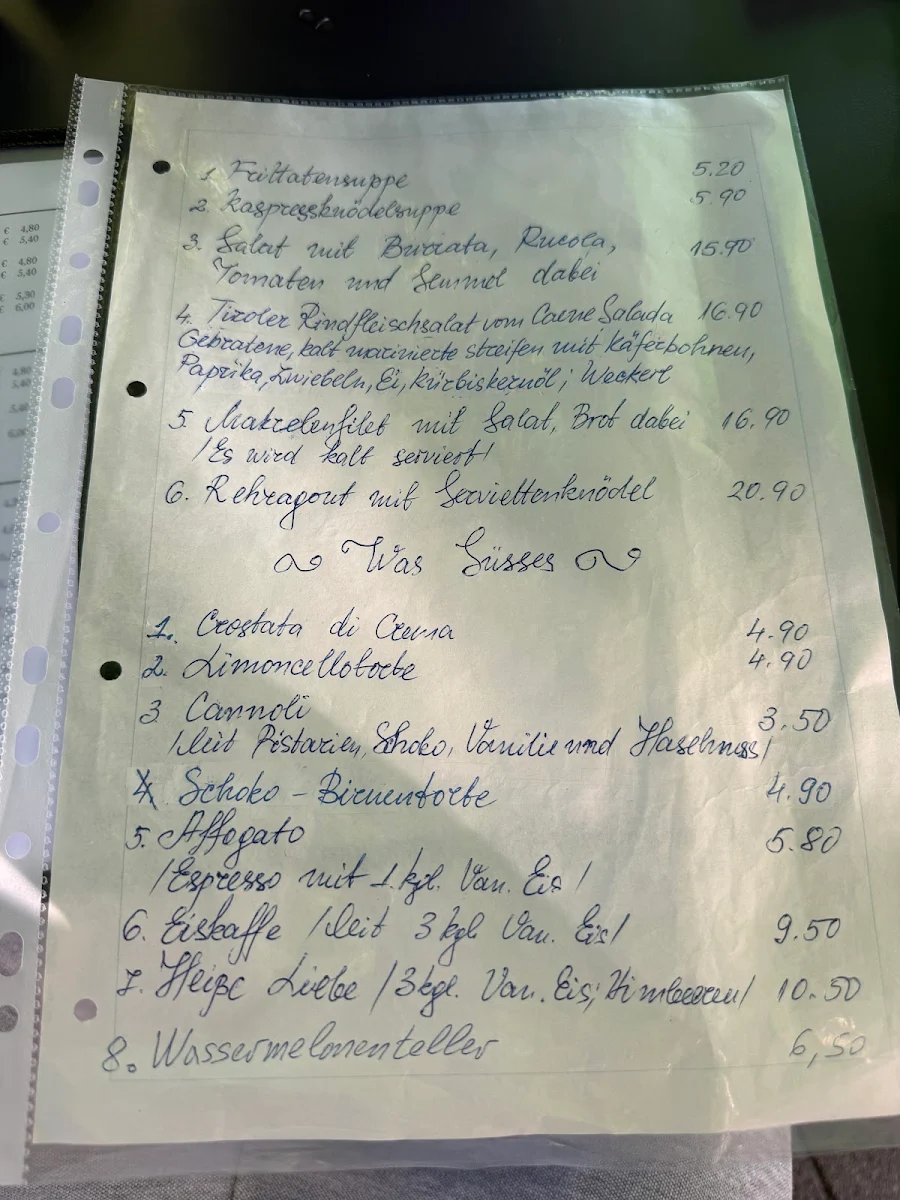 € 4,80
€ 5,40
€ 4,80
€ 5,40
€ 5,30
€ 6,00
4,80
5,40
1. Frittatensuppe 5.20
2. Kaspressknödelsuppe 5.90
3. Salat mit Burrata, Rucola, 15.90
Tomaten und Semmel dabei
4. Tiroler Rindfleischsalat vom Carne Salada 16.90
Gebratene, kalt marinierte streifen mit Käferbohnen,
Paprika, Zwiebeln, Ei, Kürbiskernöl; Weckerl
5. Makrelenfilet mit Salat, Brot dabei 16.90
/Es wird kalt serviert/
6. Rehragout mit Serviettenknödel 20.90
Was Süsses
1. Crostata di Crema 4.90
2. Limoncellotorte 4.90
3 Cannoli 3.50
/Mit Pistazien, Schoko, Vanilie und Haselnuss/
4. Schoko - Birnentorte 4.90
5. Affogato 5.80
/Espresso mit 1 kgl. Van. Eis /
6. Eiskaffe /Mit 3 kgl Van. Eis/ 9.50
7. Heiße Liebe /3 kgl. Van. Eis; Himbeeren/ 10.50
8. Wassermelonenteller 6,50